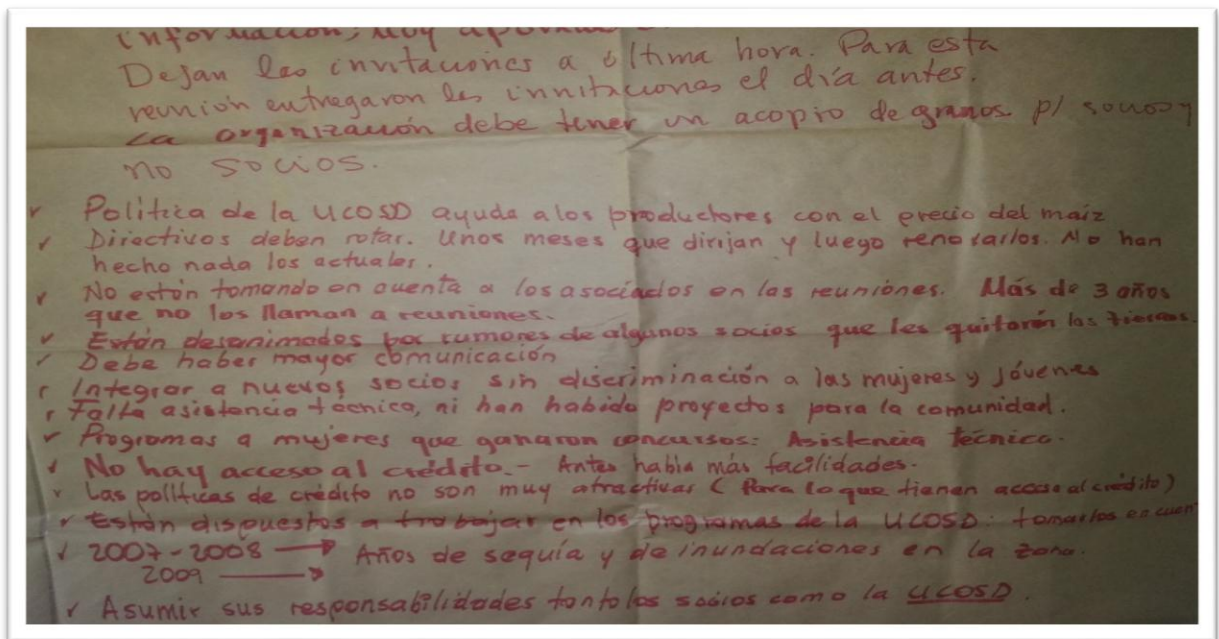 información, muy
Dejan las invitaciones a última hora. Para esta
reunión entregaron las invitaciones el día antes.
La organización debe tener un acopio de granos p/ socios y
no socios.
✓ Política de la UCOSD ayuda a los productores con el precio del maíz
✓ Directivos deben rotar. Unos meses que dirijan y luego renovarlos. No han
hecho nada los actuales.
✓ No están tomando en cuenta a los asociados en las reuniones. Más de 3 años
que no los llaman a reuniones.
✓ Están desanimados por rumores de algunos socios que les quitarón las tierras.
✓ Debe haber mayor comunicación
✓ Integrar a nuevos socios sin discriminación a las mujeres y Jóvenes
✓ Falta asistencia tecnica, ni han habido proyectos para la comunidad.
✓ Programas a mujeres que ganaron concursos: Asistencia técnica.
✓ No hay acceso al crédito.- Antes había más facilidades.
✓ Las políticas de crédito no son muy atractivas (Para lo que tienen acceso al crédito)
✓ Están dispuestos a trabajar en los programas de la UCOSD: tomarlos en cuen
✓ 2007-2008 → Años de sequía y de inundaciones en la zona.
2009 →
✓ Asumir sus responsabilidades tanto los socios como la UCOSD.